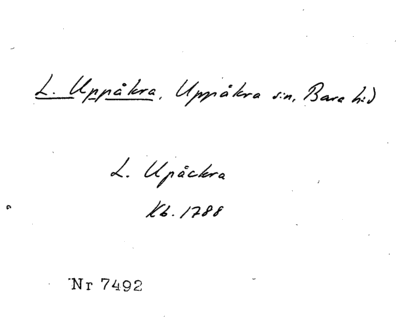 L. Uppåkra, Uppåkra sn, Bara hd
L. Upåckra
Kb. 1788
Nr 7492